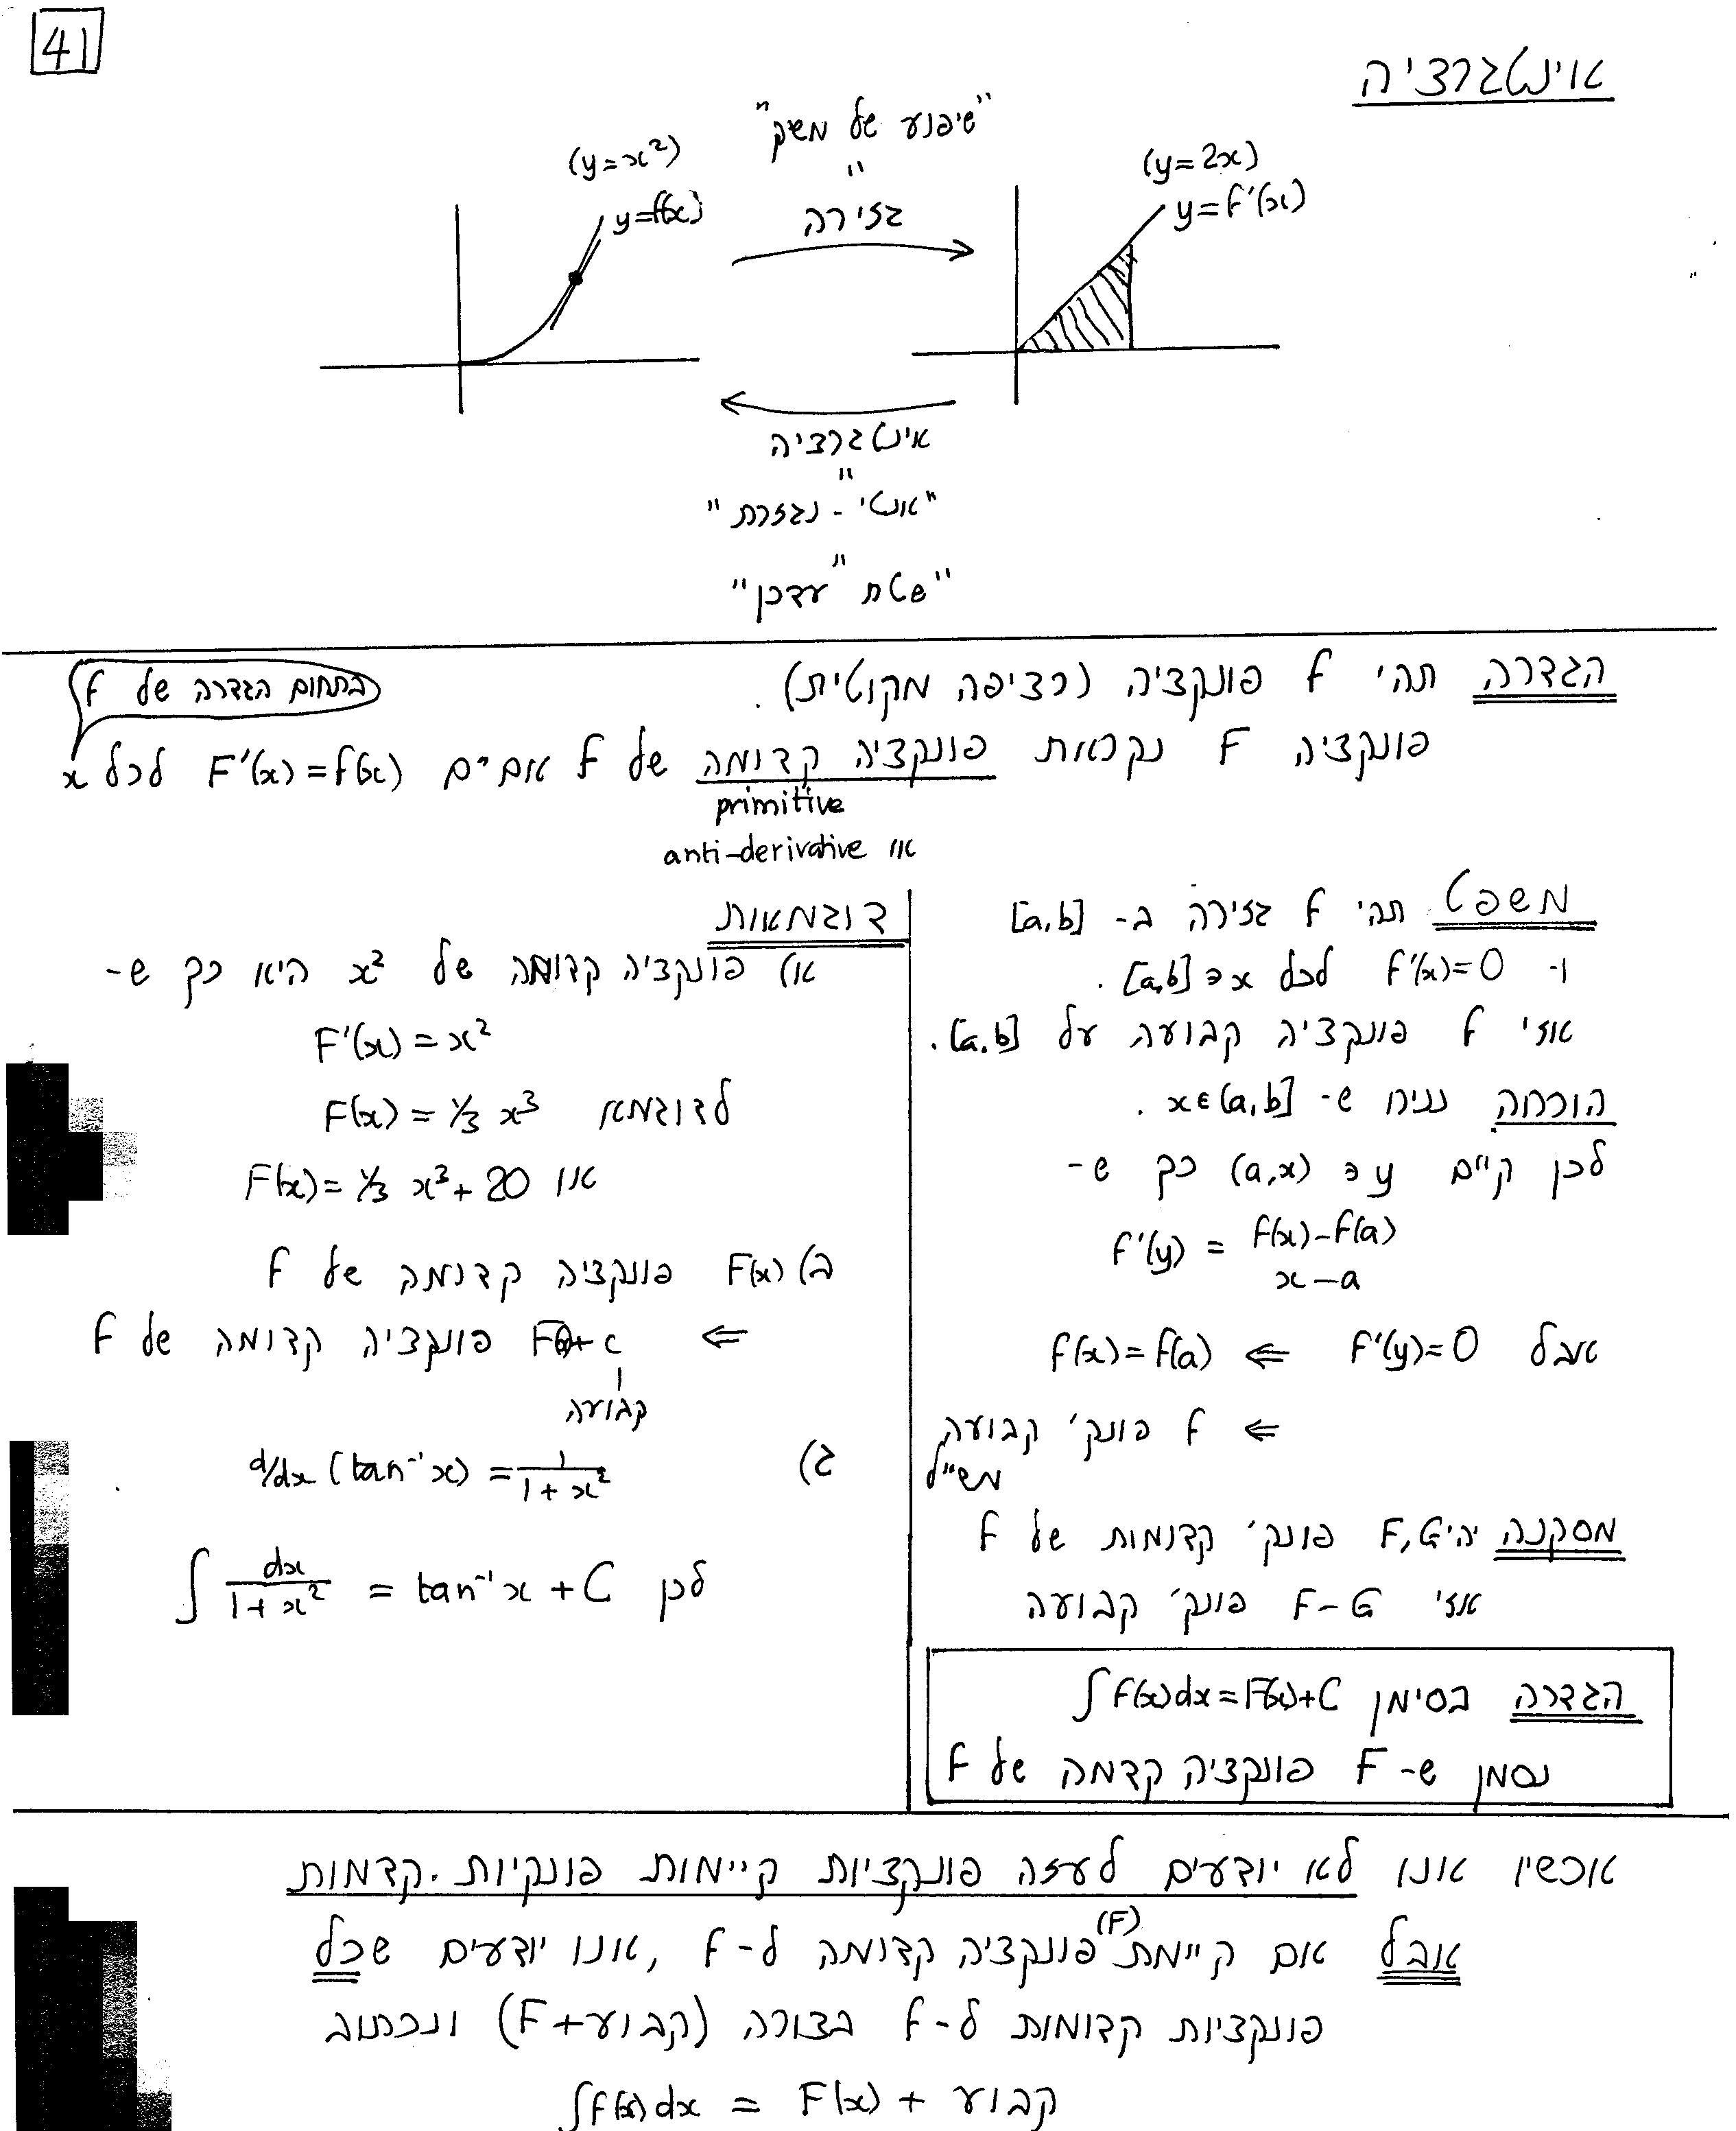 41
אינטגרציה
"שיפוע של משיק"
"
(y=x²)
y=f(x)
גזירה
(y=2x)
y=f'(x)
אינטגרציה
"
"אנטי-נגזרת"
"
"שטח עדכן"
הגדרה תהי f פונקציה (רציפה מקוטית).
בתחום הגדרה של f
פונקציה F נקראת פונקציה קדומה של f אם"ם F'(x)=f(x) לכל x
primitive
או anti-derivative
משפט תהי f גזירה ב- [a,b]
ו- f'(x)=0 לכל x∈[a,b].
אזי f פונקציה קבועה על [a,b].
הוכחה נניח ש- x∈(a,b].
לכן קיים y∈(a,x) כך ש-
f'(y) = f(x)-f(a) / x-a
אבל f'(y)=0 ⇐ f(x)=f(a)
⇐ f פונק' קבועה
מש"ל
מסקנה יהי F,G פונק' קדומות של f
אזי F-G פונק' קבועה
הגדרה בסימן ∫f(x)dx=F(x)+C
נסמן ש-F פונקציה קדמה של f
דוגמאות
א) פונקציה קדומה של x² היא כך ש-
F'(x)=x²
לדוגמא F(x)=1/3 x³
או F(x)=1/3 x³+20
ב) F(x) פונקציה קדומה של f
⇐ F(x)+c פונקציה קדומה של f
קבועה
ג) d/dx (tan⁻¹x) = 1/1+x²
לכן ∫ dx/1+x² = tan⁻¹x + C
אכשיו אנו לא יודעים לעזה פונקציות קיימות פונקיות קדמות.
אבל אם קיימת פונקציה קדומה (F) ל-f, אנו יודעים שכל
פונקציות קדומות ל-f בצורה (F+קבוע) ונכתוב
∫f(x)dx = F(x) + קבוע